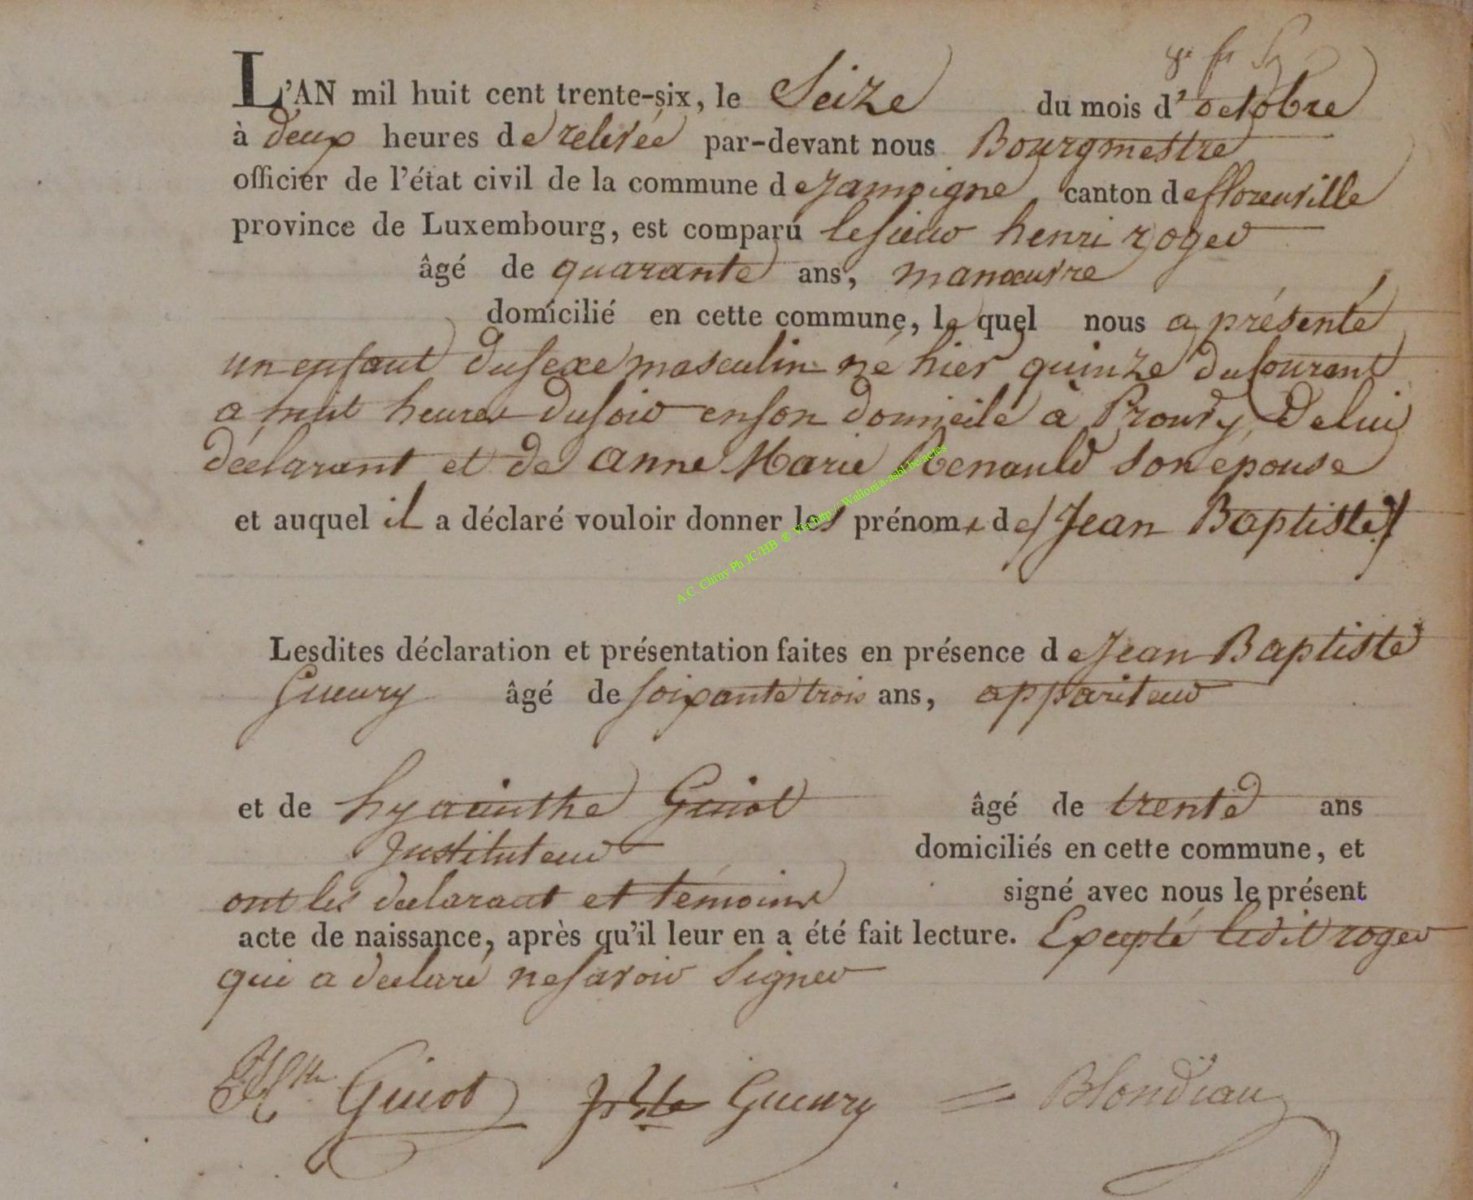 L'AN mil huit cent trente-six, le Seize du mois d'octobre
à deux heures de relevée par-devant nous Bourgmestre
officier de l'état civil de la commune de Jamoigne canton de florenville
province de Luxembourg, est comparu le sieur henri roger
âgé de quarante ans, manœuvre
domicilié en cette commune, le quel nous a présenté
un enfant du sexe masculin né hier quinze du Courant
a huit heures du soir en son domicile à Prouvy, De lui
déclarant et de Anne Marie Renauld son épouse
et auquel il a déclaré vouloir donner les prénoms de Jean Baptiste
Lesdites déclaration et présentation faites en présence de Jean Baptiste
Gueury âgé de soixante trois ans, appariteur
et de hyacinthe Guiot âgé de trente ans
Instituteur domiciliés en cette commune, et
ont les declarant et témoins signé avec nous le présent
acte de naissance, après qu'il leur en a été fait lecture. Excepté ledit roger
qui a declaré ne savoir signer
Guiot Gueury Blondiau